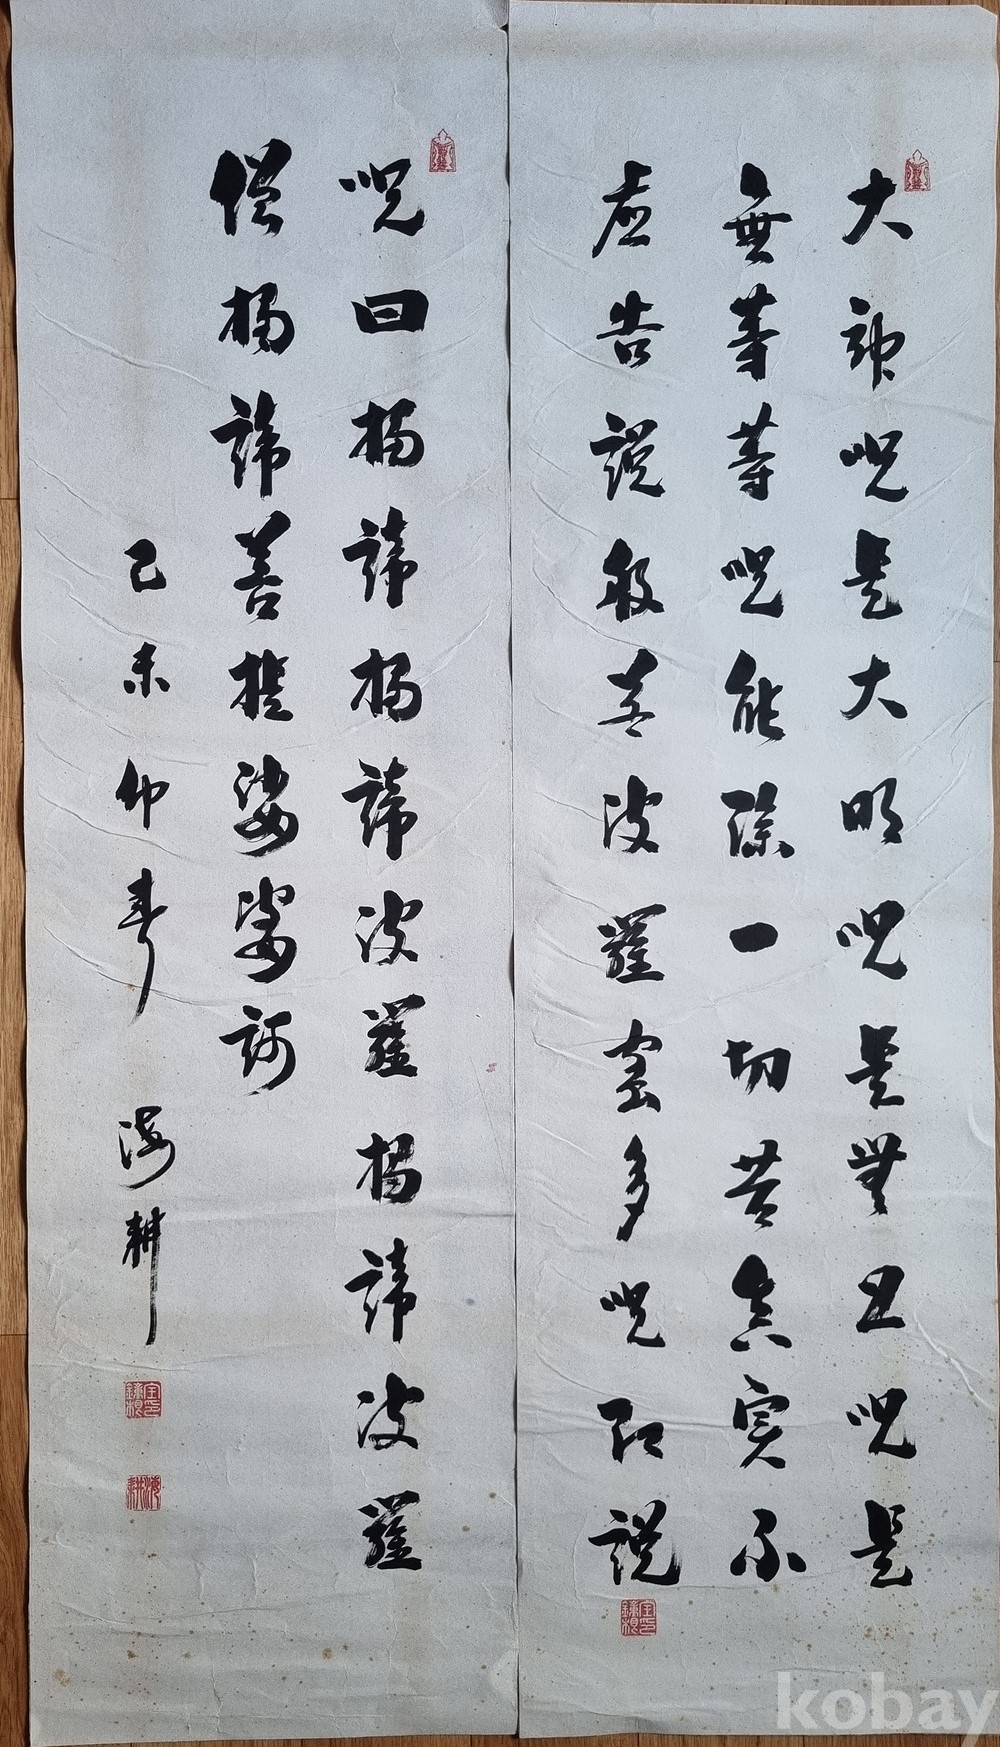 大神呪是大明呪是無上呪是
無等等呪能除一切苦真実不
虛告說般若波羅蜜多呪即說
呪曰揭諦揭諦波羅揭諦波羅
僧揭諦菩提娑婆訶
己未仲春 海耕
海耕
kobay